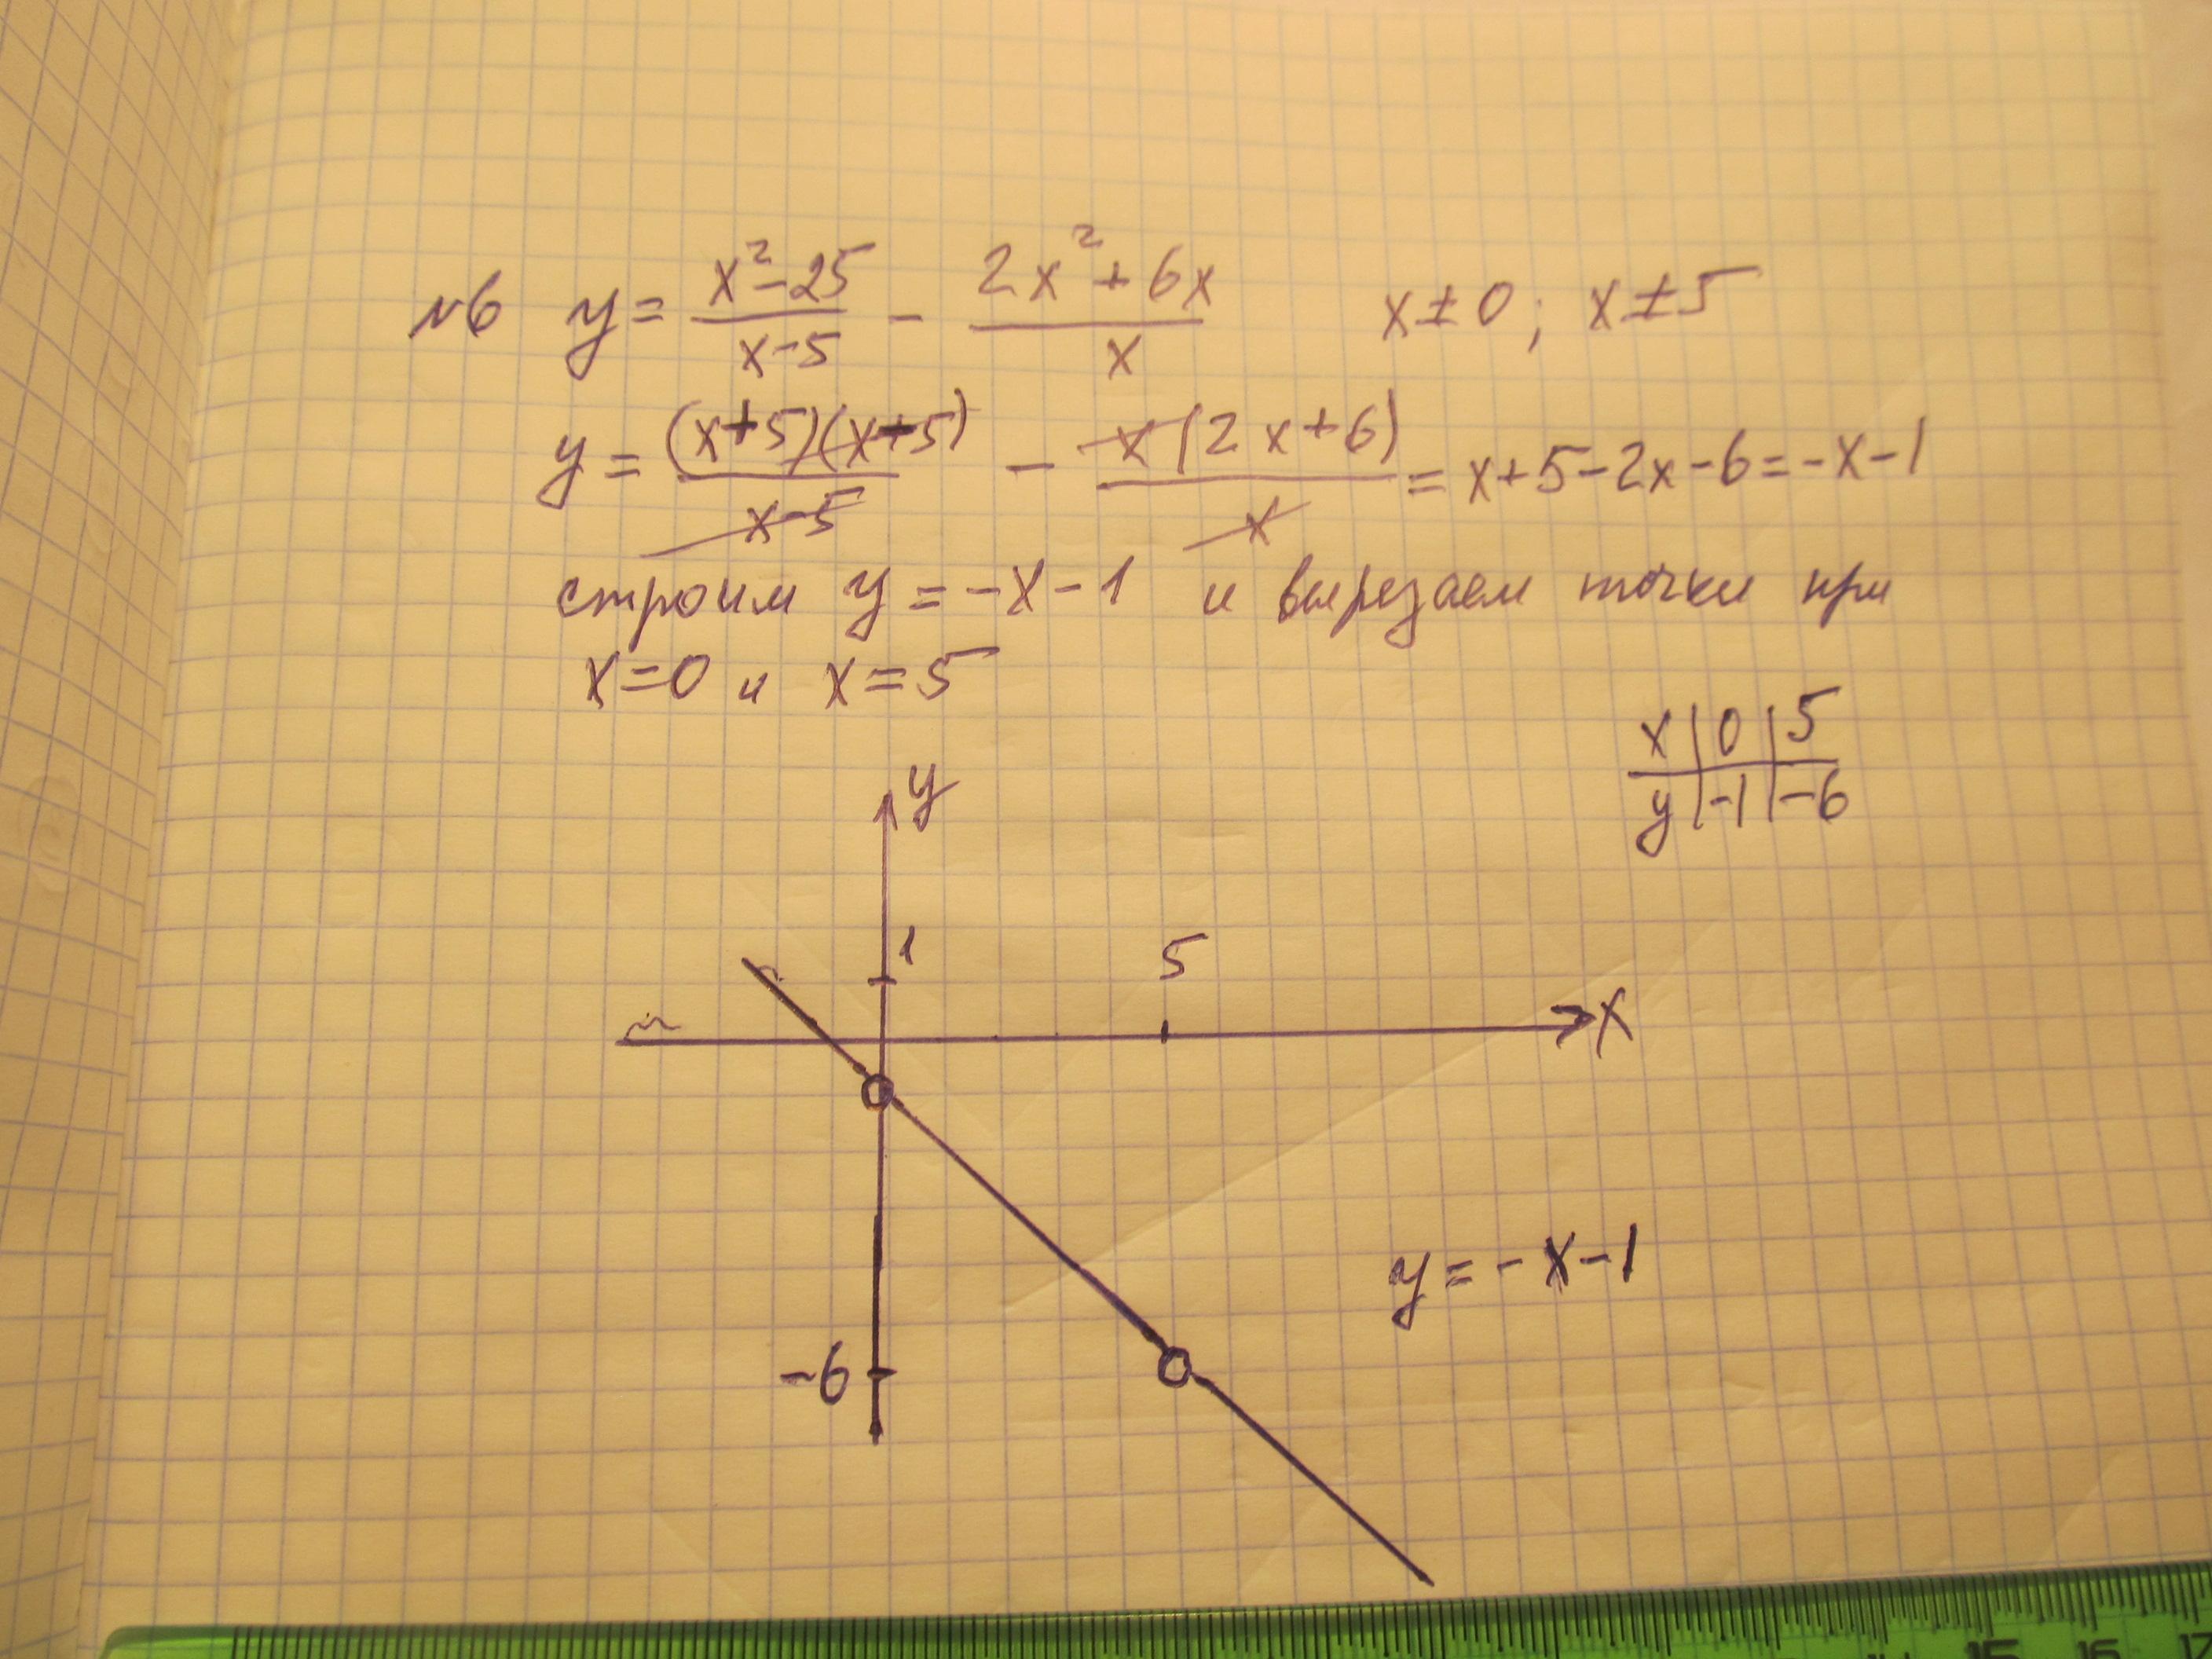 №6 y = (x²-25)/(x-5) - (2x²+6x)/x x≠0; x≠5
y = (x+5)(x-5)/(x-5) - x(2x+6)/x = x+5-2x-6=-x-1
строим y = -x-1 и вырезаем точки при
x=0 и x=5
x | 0 | 5
y | -1 | -6
y
1
5
x
y = -x-1
-6
15 16 17